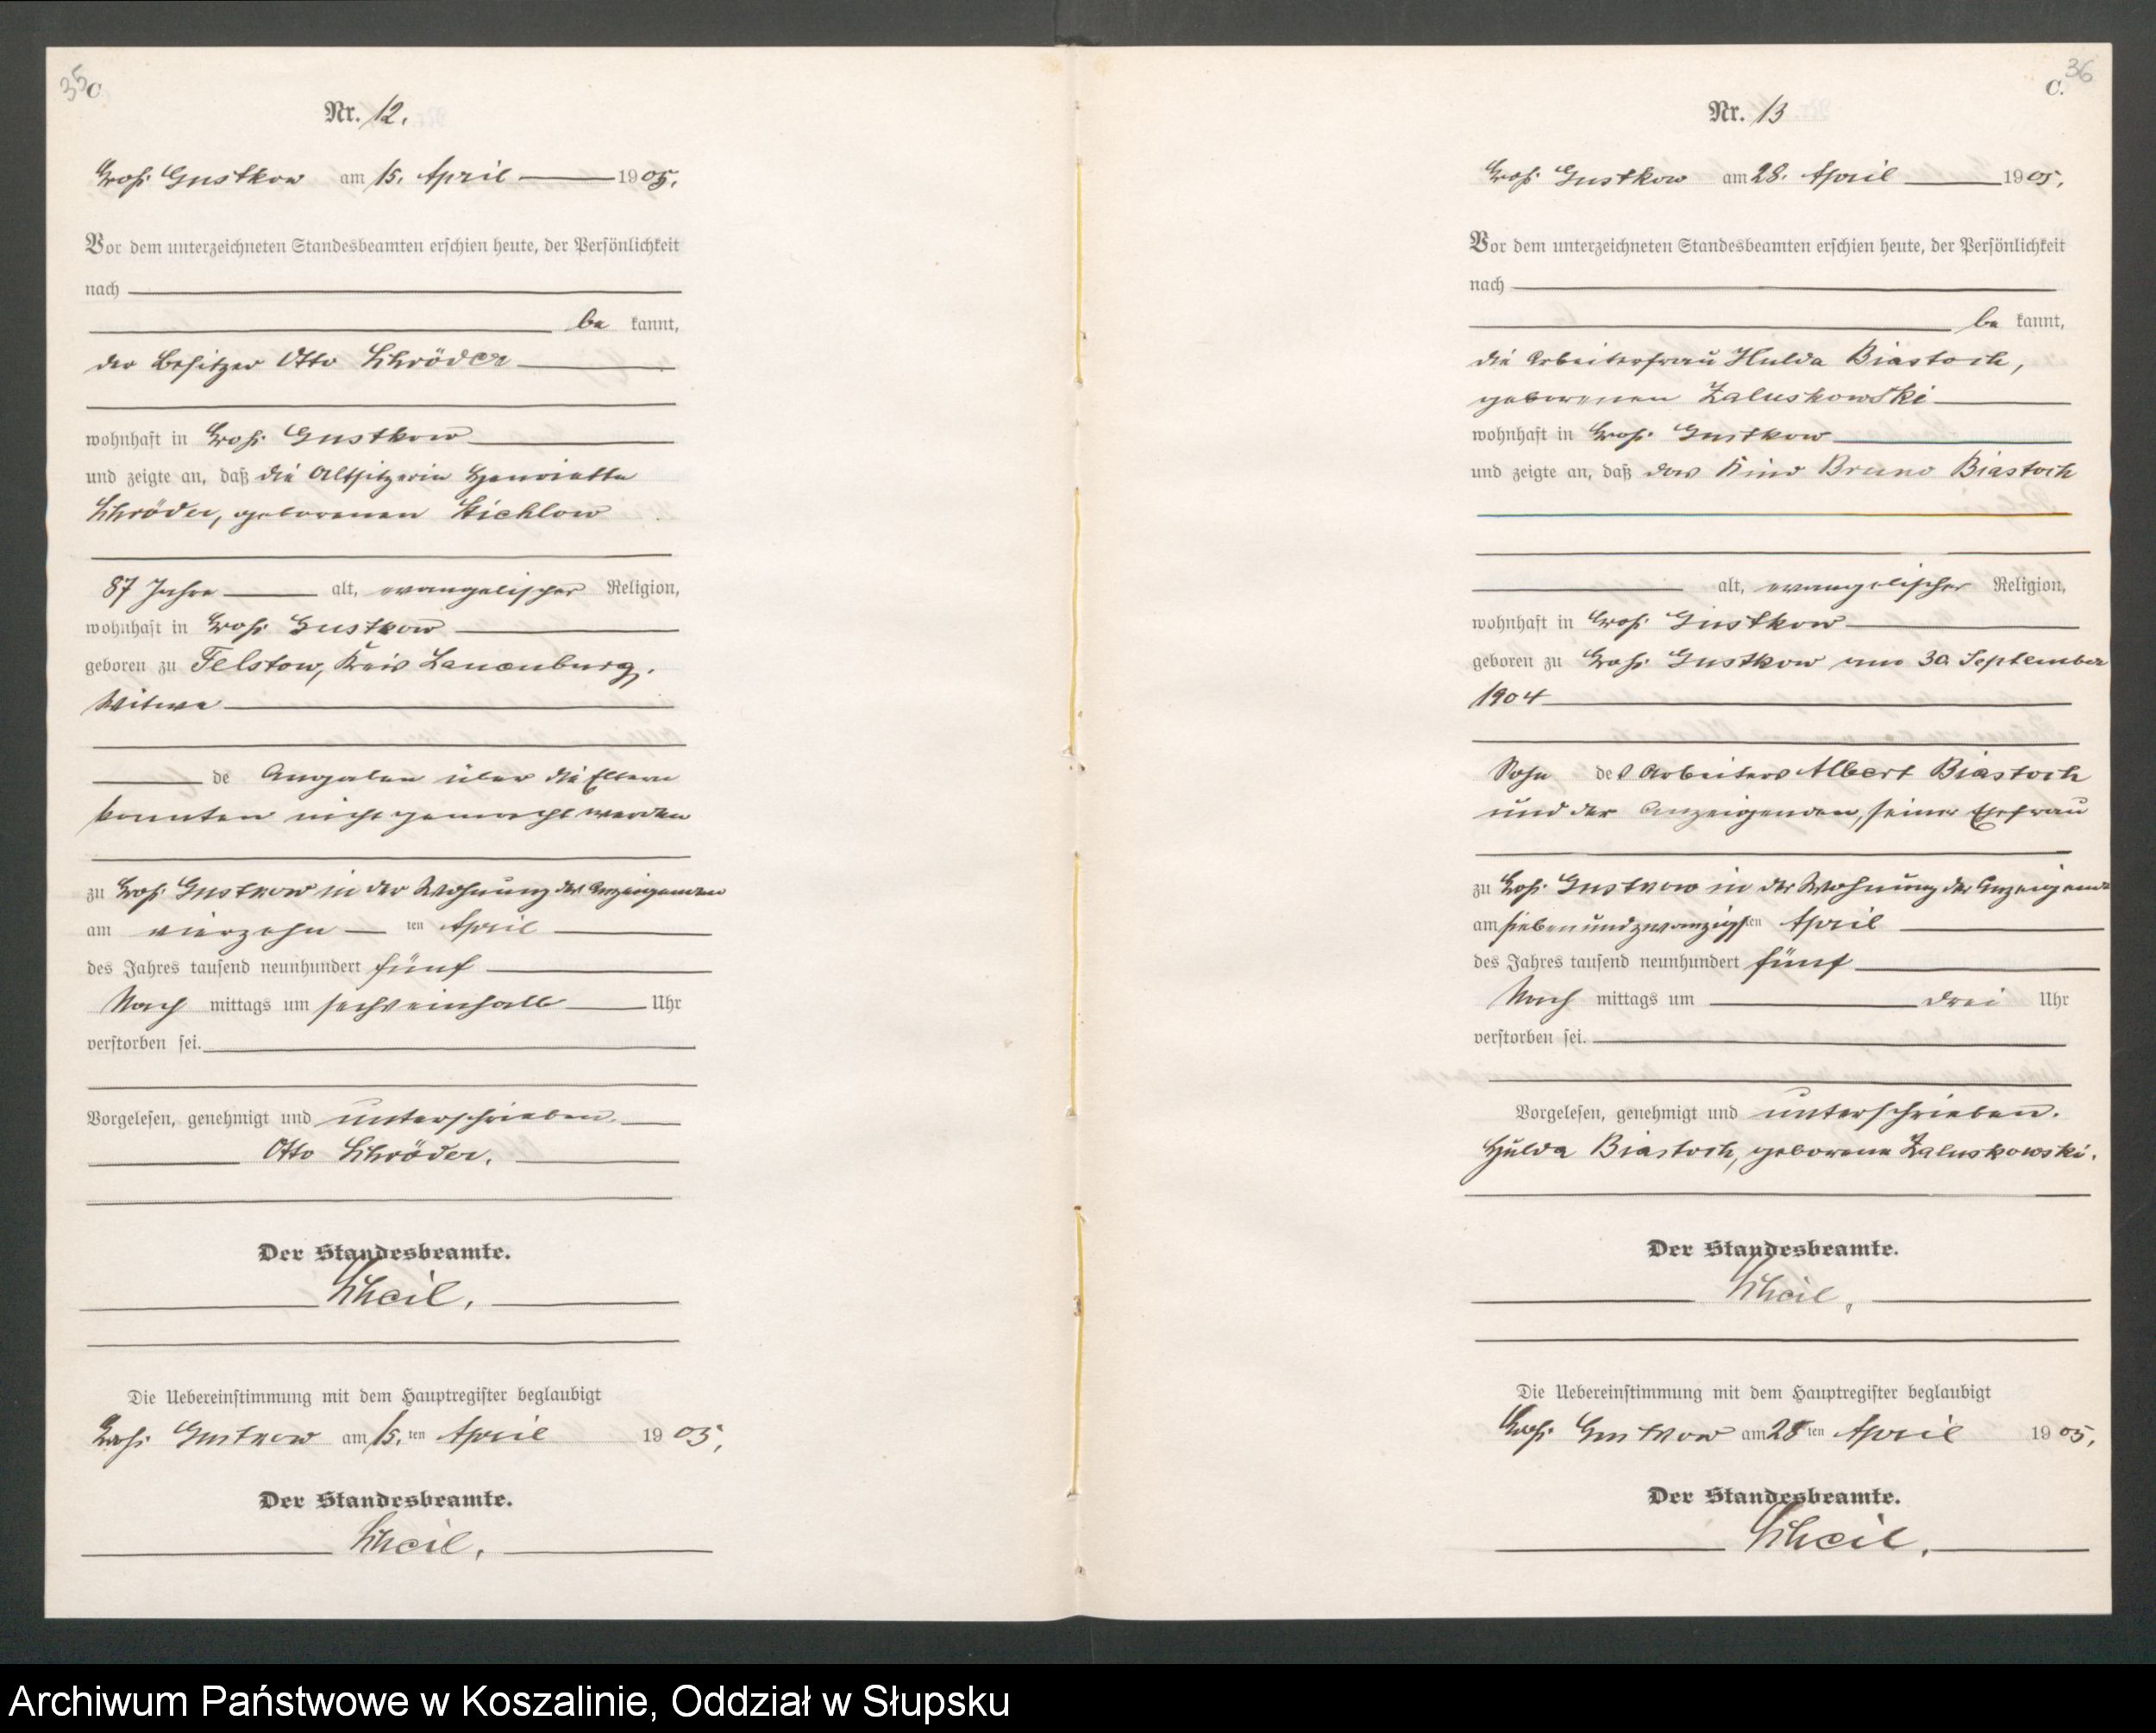 35
C
Nr. 12.
Groß Gustkow am 15. April 1905.
Vor dem unterzeichneten Standesbeamten erschien heute, der Persönlichkeit
nach
be kannt,
der Besitzer Otto Schröder
wohnhaft in Groß Gustkow
und zeigte an, daß die Altsitzerin Henriette
Schröder, geborenen
87 Jahre alt, evangelischer Religion,
wohnhaft in Groß Gustkow
geboren zu Felstow, Kreis Lauenburg.
Witwe
de Angaben über die Eltern
konnten nicht gemacht werden
zu Groß Gustkow in der Wohnung des Anzeigenden
am vierzehn ten April
des Jahres tausend neunhundert fünf
Nach mittags um sechseinhalb Uhr
verstorben sei.
Vorgelesen, genehmigt und unterschrieben.
Otto Schröder.
Der Standesbeamte.
Scheil.
Die Uebereinstimmung mit dem Hauptregister beglaubigt
Groß Gustkow am 15. ten April 1905.
Der Standesbeamte.
Scheil.
36
C.
Nr. 13
Groß Gustkow am 28. April 1905.
Vor dem unterzeichneten Standesbeamten erschien heute, der Persönlichkeit
nach
be kannt,
die Arbeiterfrau Hulda Biastoch,
geborenen Zaluskowski
wohnhaft in Groß Gustkow
und zeigte an, daß das Kind Bruno Biastoch
alt, evangelischer Religion,
wohnhaft in Groß Gustkow
geboren zu Groß Gustkow am 30 September
1904
Sohn des Arbeiters Albert Biastoch
und der Anzeigenden, seiner Ehefrau
zu Groß Gustkow in der Wohnung der Anzeigende
am siebenundzwanzigsten April
des Jahres tausend neunhundert fünf
Nach mittags um drei Uhr
verstorben sei.
Vorgelesen, genehmigt und unterschrieben.
Hulda Biastoch, geborene Zaluskowski.
Der Standesbeamte.
Scheil.
Die Uebereinstimmung mit dem Hauptregister beglaubigt
Groß Gustkow am 28 ten April 1905.
Der Standesbeamte.
Scheil.
Archiwum Państwowe w Koszalinie, Oddział w Słupsku